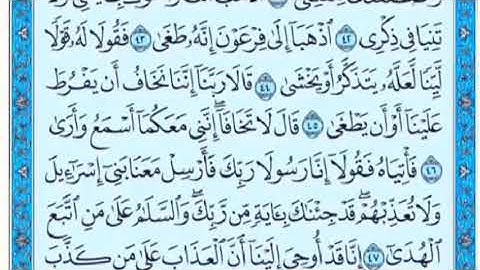 تَنِيَا فِي ذِكْرِي ٤٢ ٱذْهَبَآ إِلَىٰ فِرْعَوْنَ إِنَّهُۥ طَغَىٰ ٤٣ فَقُولَا لَهُۥ قَوْلًا
لَّيِّنًا لَّعَلَّهُۥ يَتَذَكَّرُ أَوْ يَخْشَىٰ ٤٤ قَالَا رَبَّنَآ إِنَّنَا نَخَافُ أَن يَفْرُطَ
عَلَيْنَآ أَوْ أَن يَطْغَىٰ ٤٥ قَالَ لَا تَخَافَآ ۖ إِنَّنِي مَعَكُمَآ أَسْمَعُ وَأَرَىٰ
٤٦ فَأْتِيَاهُ فَقُولَآ إِنَّا رَسُولَا رَبِّكَ فَأَرْسِلْ مَعَنَا بَنِيٓ إِسْرَٰٓءِيلَ
وَلَا تُعَذِّبْهُمْ ۖ قَدْ جِئْنَٰكَ بِـَٔايَةٍ مِّن رَّبِّكَ ۖ وَٱلسَّلَٰمُ عَلَىٰ مَنِ ٱتَّبَعَ
ٱلْهُدَىٰٓ ٤٧ إِنَّا قَدْ أُوحِيَ إِلَيْنَآ أَنَّ ٱلْعَذَابَ عَلَىٰ مَن كَذَّبَ